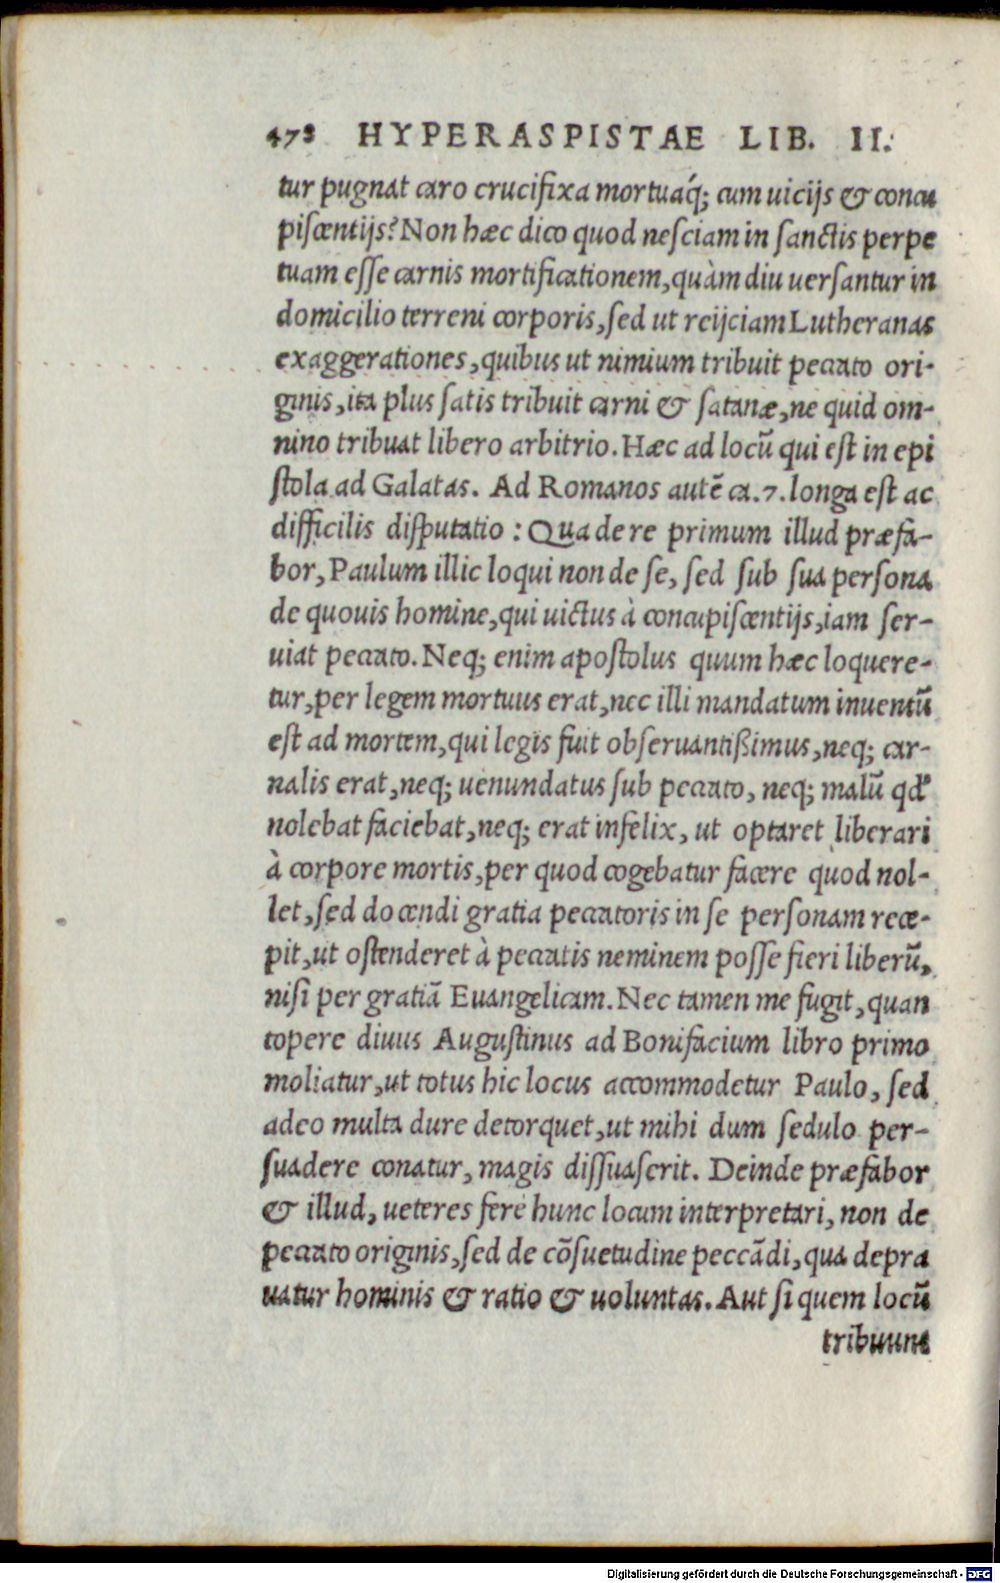 478 HYPERASPISTAE LIB. II.
tur pugnat caro crucifixa mortuaq́; cum uicijs & concu
piscentijs? Non hæc dico quod nesciam in sanctis perpe
tuam esse carnis mortificationem, quàm diu uersantur in
domicilio terreni corporis, sed ut reijciam Lutheranas
exaggerationes, quibus ut nimium tribuit peccato ori-
ginis, ita plus satis tribuit carni & satanæ, ne quid om-
nino tribuat libero arbitrio. Hæc ad locũ qui est in epi
stola ad Galatas. Ad Romanos autẽ ca. 7. longa est ac
difficilis disputatio: Qua de re primum illud præfa-
bor, Paulum illic loqui non de se, sed sub sua persona
de quouis homine, qui uictus à concupiscentijs, iam ser-
uiat peccato. Neq; enim apostolus quum hæc loquere-
tur, per legem mortuus erat, nec illi mandatum inuentũ
est ad mortem, qui legis fuit obseruantißimus, neq; car-
nalis erat, neq; uenundatus sub peccato, neq; malũ qd'
nolebat faciebat, neq; erat infelix, ut optaret liberari
à corpore mortis, per quod cogebatur facere quod nol-
let, sed docendi gratia peccatoris in se personam rece-
pit, ut ostenderet à peccatis neminem posse fieri liberũ,
nisi per gratiã Euangelicam. Nec tamen me fugit, quan
topere diuus Augustinus ad Bonifacium libro primo
moliatur, ut totus hic locus accommodetur Paulo, sed
adeo multa dure detorquet, ut mihi dum sedulo per-
suadere conatur, magis dissuaserit. Deinde præfabor
& illud, ueteres fere hunc locum interpretari, non de
peccato originis, sed de cõsuetudine peccãdi, qua depra
uatur hominis & ratio & uoluntas. Aut si quem locũ
tribuunt
Digitalisierung gefördert durch die Deutsche Forschungsgemeinschaft - DFG